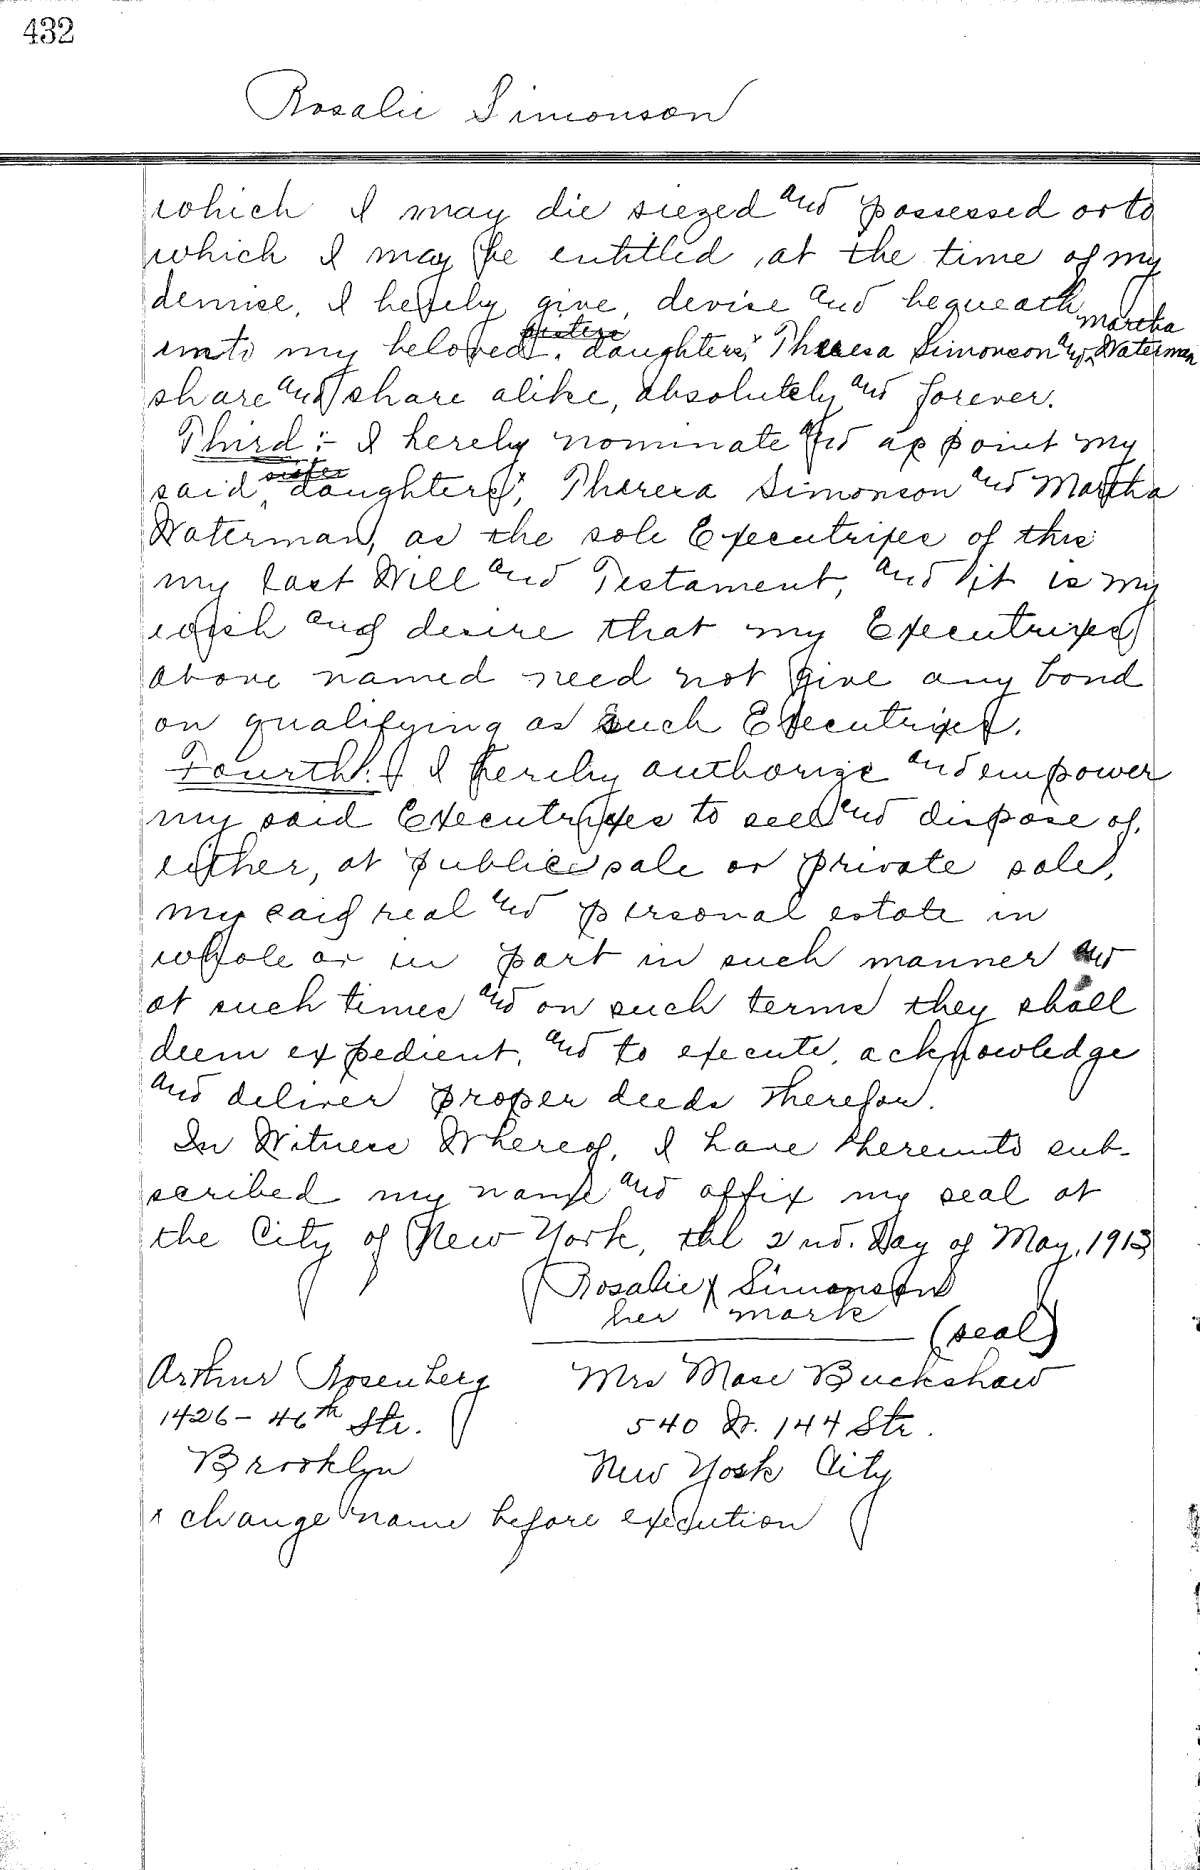 432
Rosalie Simonson
which I may die siezed and possessed or to
which I may be entitled, at the time of my
demise, I hereby give, devise and bequeath
Martha
sisters
unto my beloved, daughters,x Theresa Simonson and Waterman
share and share alike, absolutely and forever.
Third:- I hereby nominate and appoint my
sister
said, daughters,x Theresa Simonson and Martha
Waterman, as the sole Executrixes of this
my last Will and Testament, and it is my
wish and desire that my Executrixes
above named need not give any bond
on qualifying as such Executrixes.
Fourth:- I hereby authorize and empower
my said Executrixes to sell and dispose of,
either, at public sale or private sale,
my said real and personal estate in
whole or in part in such manner and
at such times and on such terms they shall
deem expedient, and to execute, acknowledge
and deliver proper deeds therefor.
In Witness Whereof, I have hereunto sub-
scribed my name and affix my seal at
the City of New York, the 2nd. Day of May, 1913
Rosalie X Simonson
her mark
(seal)
Arthur Rosenberg Mrs Mase Buckshaw
1426 - 46th Str. 540 W. 144 Str.
Brooklyn New York City
x change name before execution